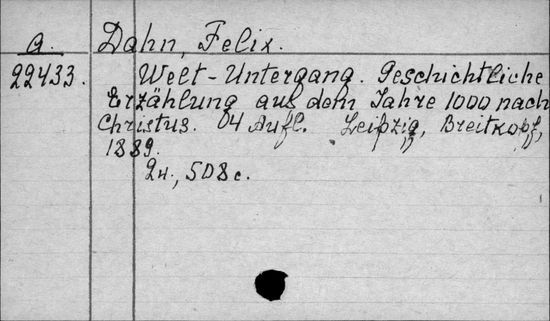 a. Dahn, Felix.
22433. Welt-Untergang. Geschichtliche
Erzählung aus dem Jahre 1000 nach
Christus. 04 Aufl. Leipzig, Breitkopf,
1889.
2н., 508с.